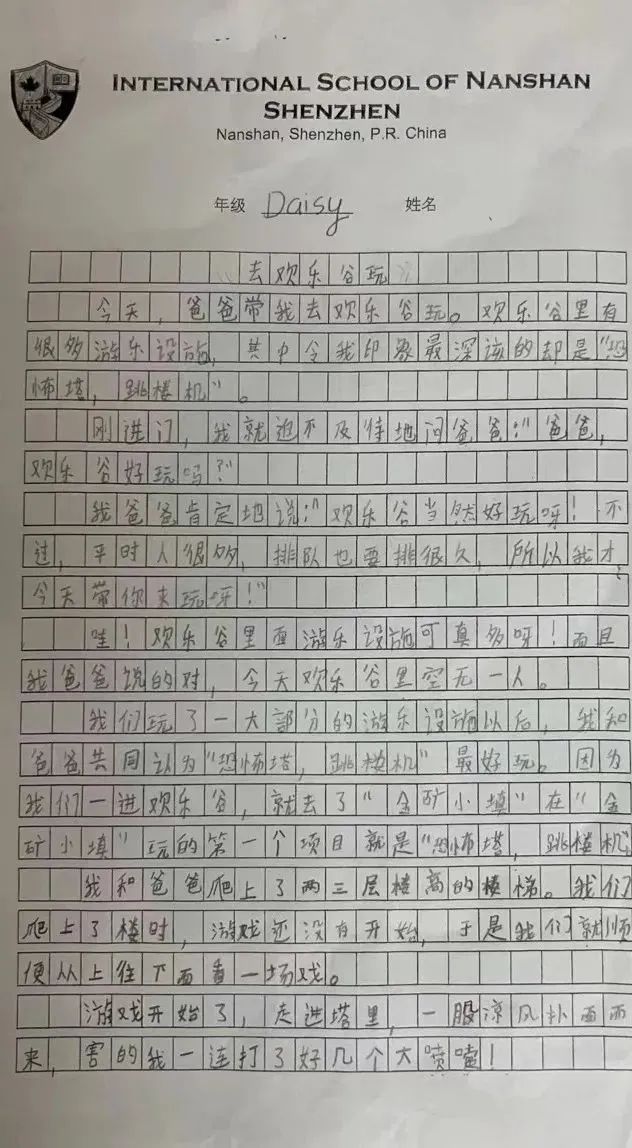 INTERNATIONAL SCHOOL OF NANSHAN
SHENZHEN
Nanshan, Shenzhen, P.R. China
年级 Daisy 姓名
去欢乐谷玩
今天，爸爸带我去欢乐谷玩。欢乐谷里有
很多游乐设施，其中令我印象最深该的却是“恐
怖塔，跳楼机”。
刚进门，我就迫不及待地问爸爸：“爸爸，
欢乐谷好玩吗？”
我爸爸肯定地说：“欢乐谷当然好玩呀！不
过，平时人很多，排队也要排很久，所以我才
今天带你来玩呀！”
哇！欢乐谷里面游乐设施可真多呀！而且
我爸爸说的对，今天欢乐谷里空无一人。
我们玩了一大部分的游乐设施以后，我和
爸爸共同认为“恐怖塔，跳楼机”最好玩。因为
我们一进欢乐谷，就去了“金矿小填”在“金
矿小填”玩的第一个项目就是“恐怖塔，跳楼机”
我和爸爸爬上了两三层楼高的楼梯。我们
爬上了楼时，游戏还没有开始，于是我们就顺
便从上往下面看一场戏。
游戏开始了，走进塔里，一股凉风扑面而
来，害的我一连打了好几个大喷嚏！